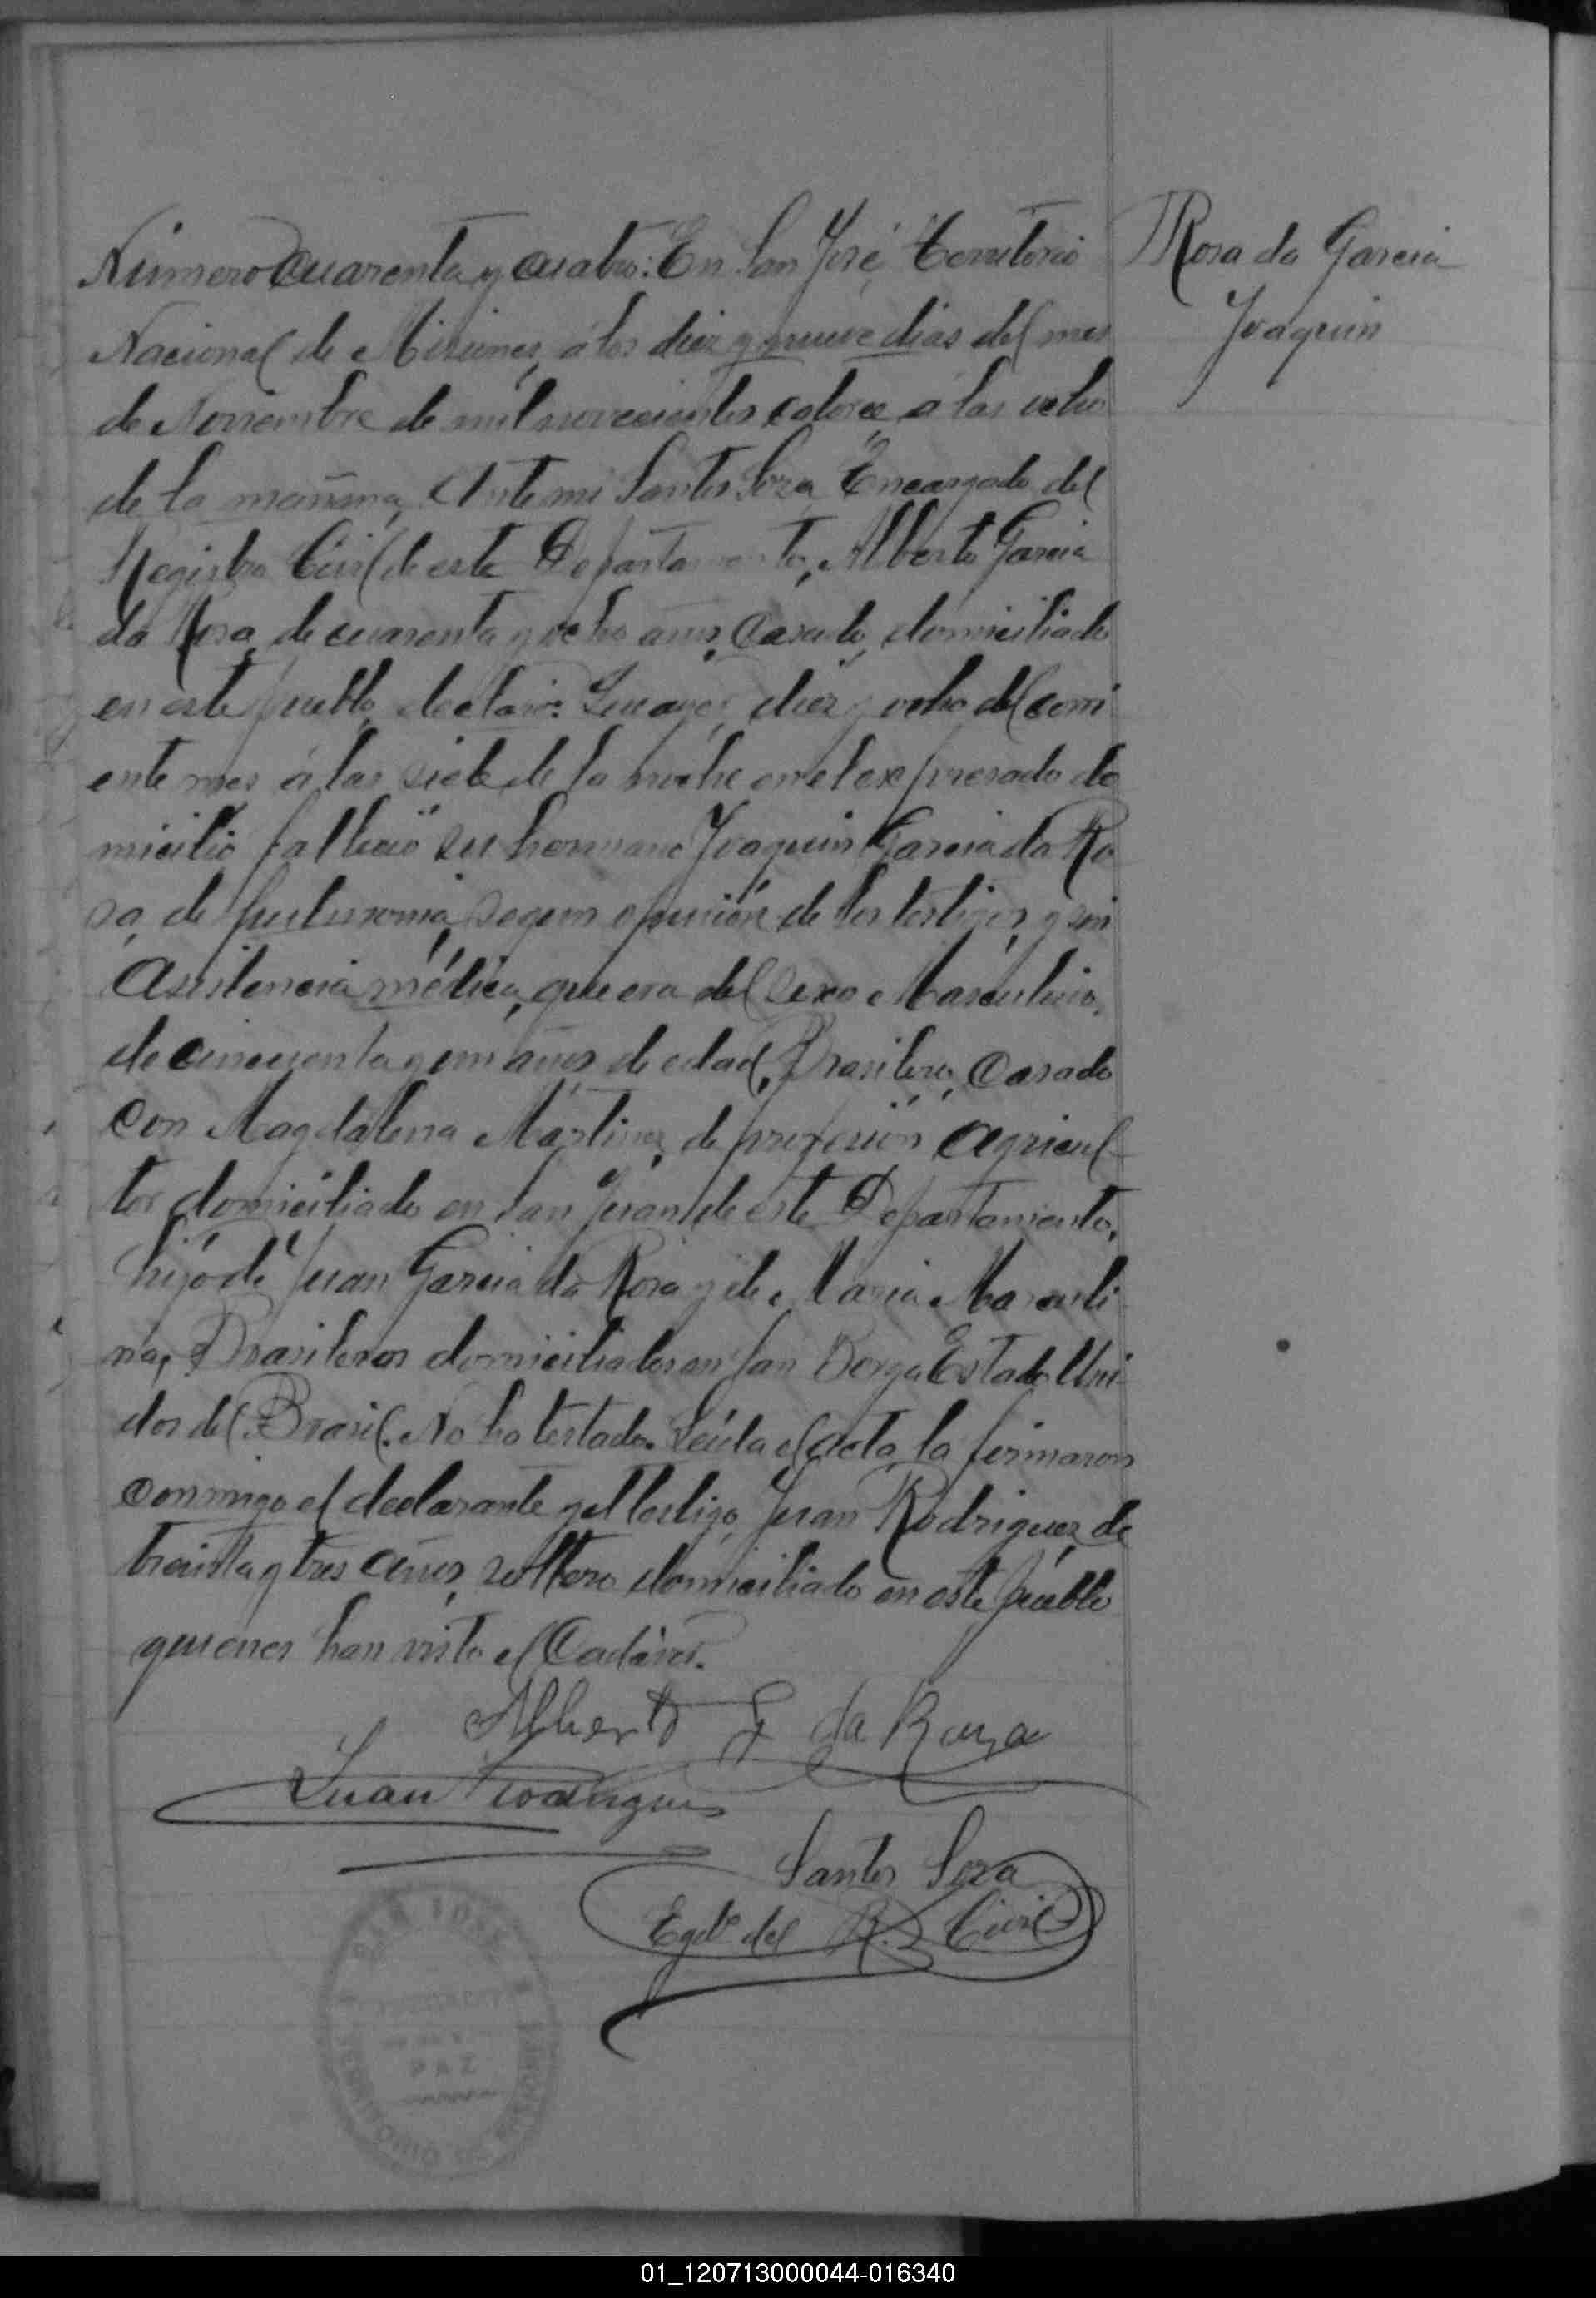 Rosa da Garcia
Joaquin
Número Cuarenta y cuatro: En San José, Territorio
Nacional de Misiones, á los diez y nueve dias del mes
de Noviembre de mil novecientos catorce, a las ocho
de la mañana, Ante mi Santos Soza, Encargado del
Registro Civil de este Departamento, Alberto Garcia
da Rosa, de cuarenta y ocho años, Casado, domiciliado
en este pueblo, declaró: Que ayer, diez y ocho del corri
ente mes á las siete de la noche en el expresado do
micilio falleció su hermano Joaquin Garcia da Ro
sa, de pulmonia, segun opinión de los testigos, y sin
Asistencia médica, que era del sexo Masculino,
de cincuenta y un años de edad, Brasilero, Casado
con Magdalena Martinez, de profesión Agricul
tor domiciliado en San Juan de este Departamento,
hijo de Juan Garcia da Rosa y de Maria Marculi
na, Brasileros domiciliados en San Borga Estado Uni
dos del Brasil. No ha testado. Leida el acta, la firmaron
conmigo el declarante y el testigo, Juan Rodriguez, de
treinta y tres años, soltero domiciliado en este pueblo
quienes han visto el Cadáver.
Alberto G da Roza
Juan Rodrigues
Santos Soza
Egdo del R. Civil
SAN JOSE
PAZ
01_120713000044-016340